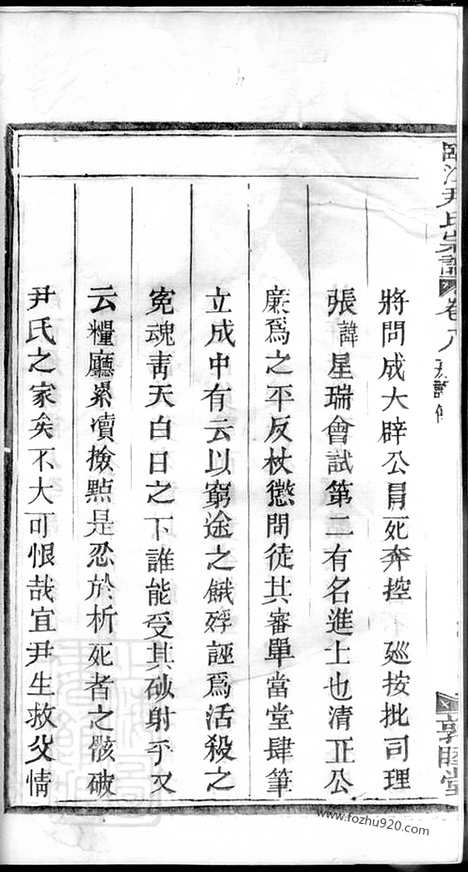 將問成大辟公冐死奔控 廵按批司理
張諱星瑞會試第二有名進士也清正公
廉爲之平反杖懲問徒其審單當堂肆筆
立成中有云以窮途之餓殍誣爲活殺之
寃魂靑天白日之下誰能受其砂射乎又
云糧廳累凟撿點是忍於析死者之骸破
尹氏之家矣不大可恨哉宜尹生救父情
江尹氏宗譜 卷八
敦睦堂
www.fozhu920.com